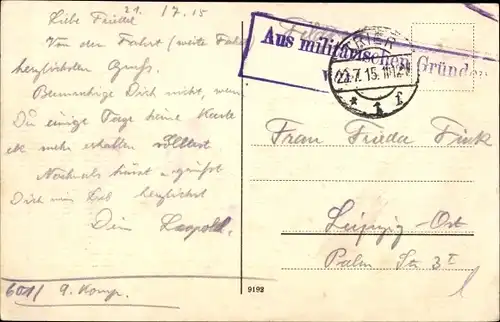 21. 17.15
Liebe Friedel
Von der Fahrt (weite Fahrt)
herzlichsten Gruß.
Beunruhige Dich nicht, wenn
Du einige Tage keine Karte
mehr erhalten solltest
Nochmals küsst u. grüßt
Dich mein Lieb herzlichst
Dein Leopold.
601/ 9. Komp.
Feldpost
Aus militärischen Gründen
TRIER
22.7.15. 11-12V
* 1 f
Frau Frieda Fink
Leipzig-Ost
Palm Str 3 I
9192